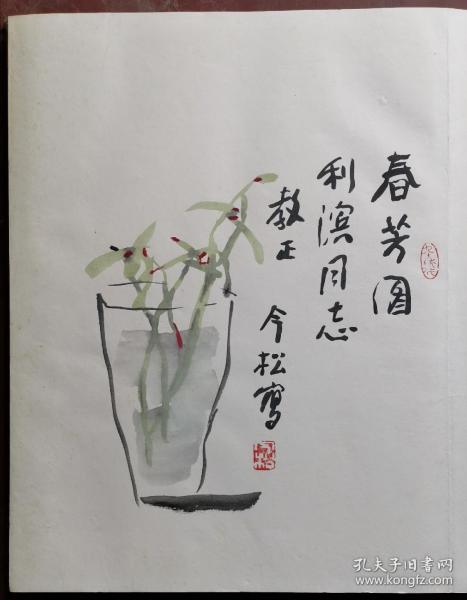 春芳图
利滨同志
教正
今松写
孔夫子旧书网
www.kongfz.com